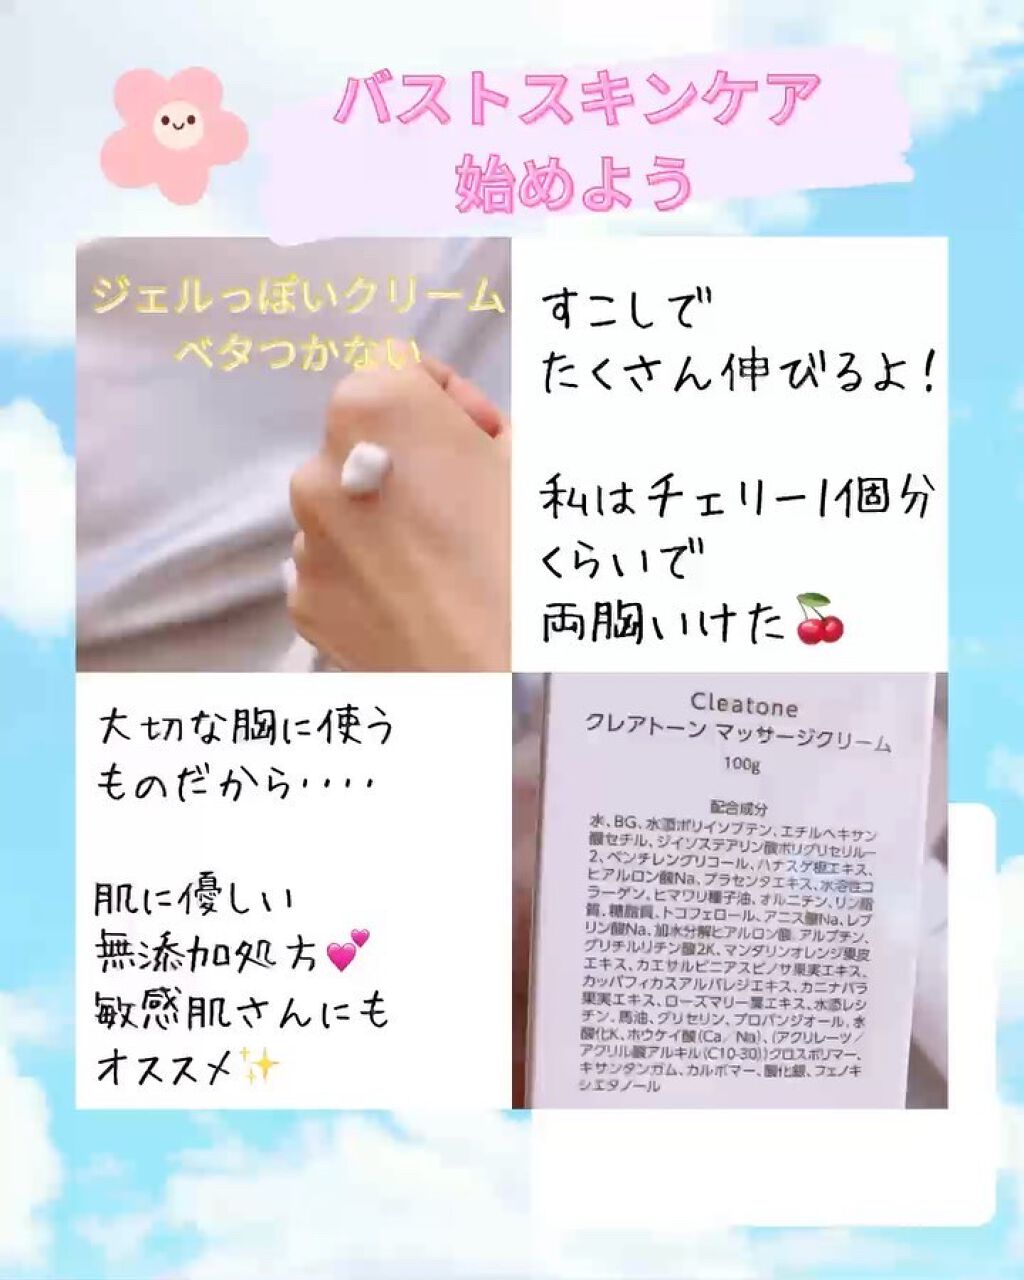 バストスキンケア
始めよう
ジェルっぽいクリーム
ベタつかない
すこしで
たくさん伸びるよ!
私はチェリー1個分
くらいで
両胸いけた🍒
大切な胸に使う
ものだから‥‥
肌に優しい
無添加処方💕
敏感肌さんにも
オススメ✨
Cleatone
クレアトーン マッサージクリーム
100g
配合成分
水、BG、水添ポリイソブテン、エチルヘキサン
酸セチル、ジイソステアリン酸ポリグリセリル－
2、ペンチレングリコール、ハナスゲ根エキス、
ヒアルロン酸Na、プラセンタエキス、水溶性コ
ラーゲン、ヒマワリ種子油、オルニチン、リン脂
質、糖脂質、トコフェロール、アニス酸Na、レブ
リン酸Na、加水分解ヒアルロン酸、アルブチン、
グリチルリチン酸2K、マンダリンオレンジ果皮
エキス、カエサルピニアスピノサ果実エキス、
カッパフィカスアルバレジエキス、カニナバラ
果実エキス、ローズマリー葉エキス、水添レシ
チン、馬油、グリセリン、プロパンジオール、水
酸化K、ホウケイ酸(Ca／Na)、(アクリレーツ／
アクリル酸アルキル(C10-30))クロスポリマー、
キサンタンガム、カルボマー、酸化銀、フェノキ
シエタノール